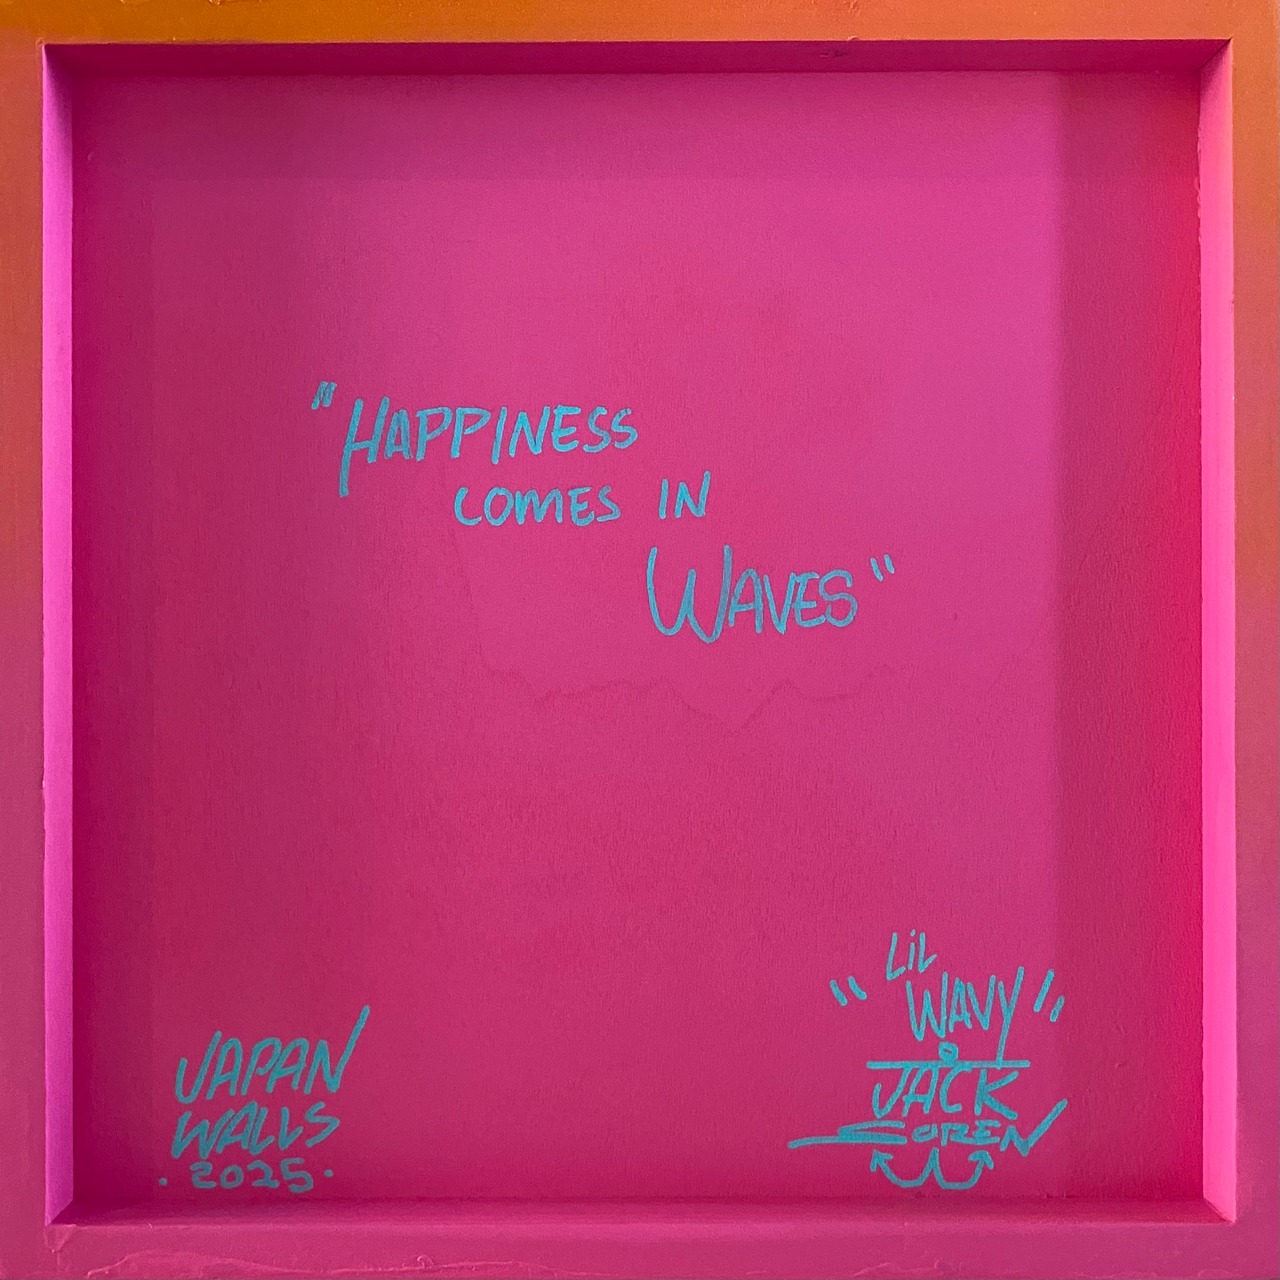 "HAPPINESS
COMES IN
WAVES"
JAPAN
WALLS
·2025·
LiL
"WAVY"
JACK
SOREN